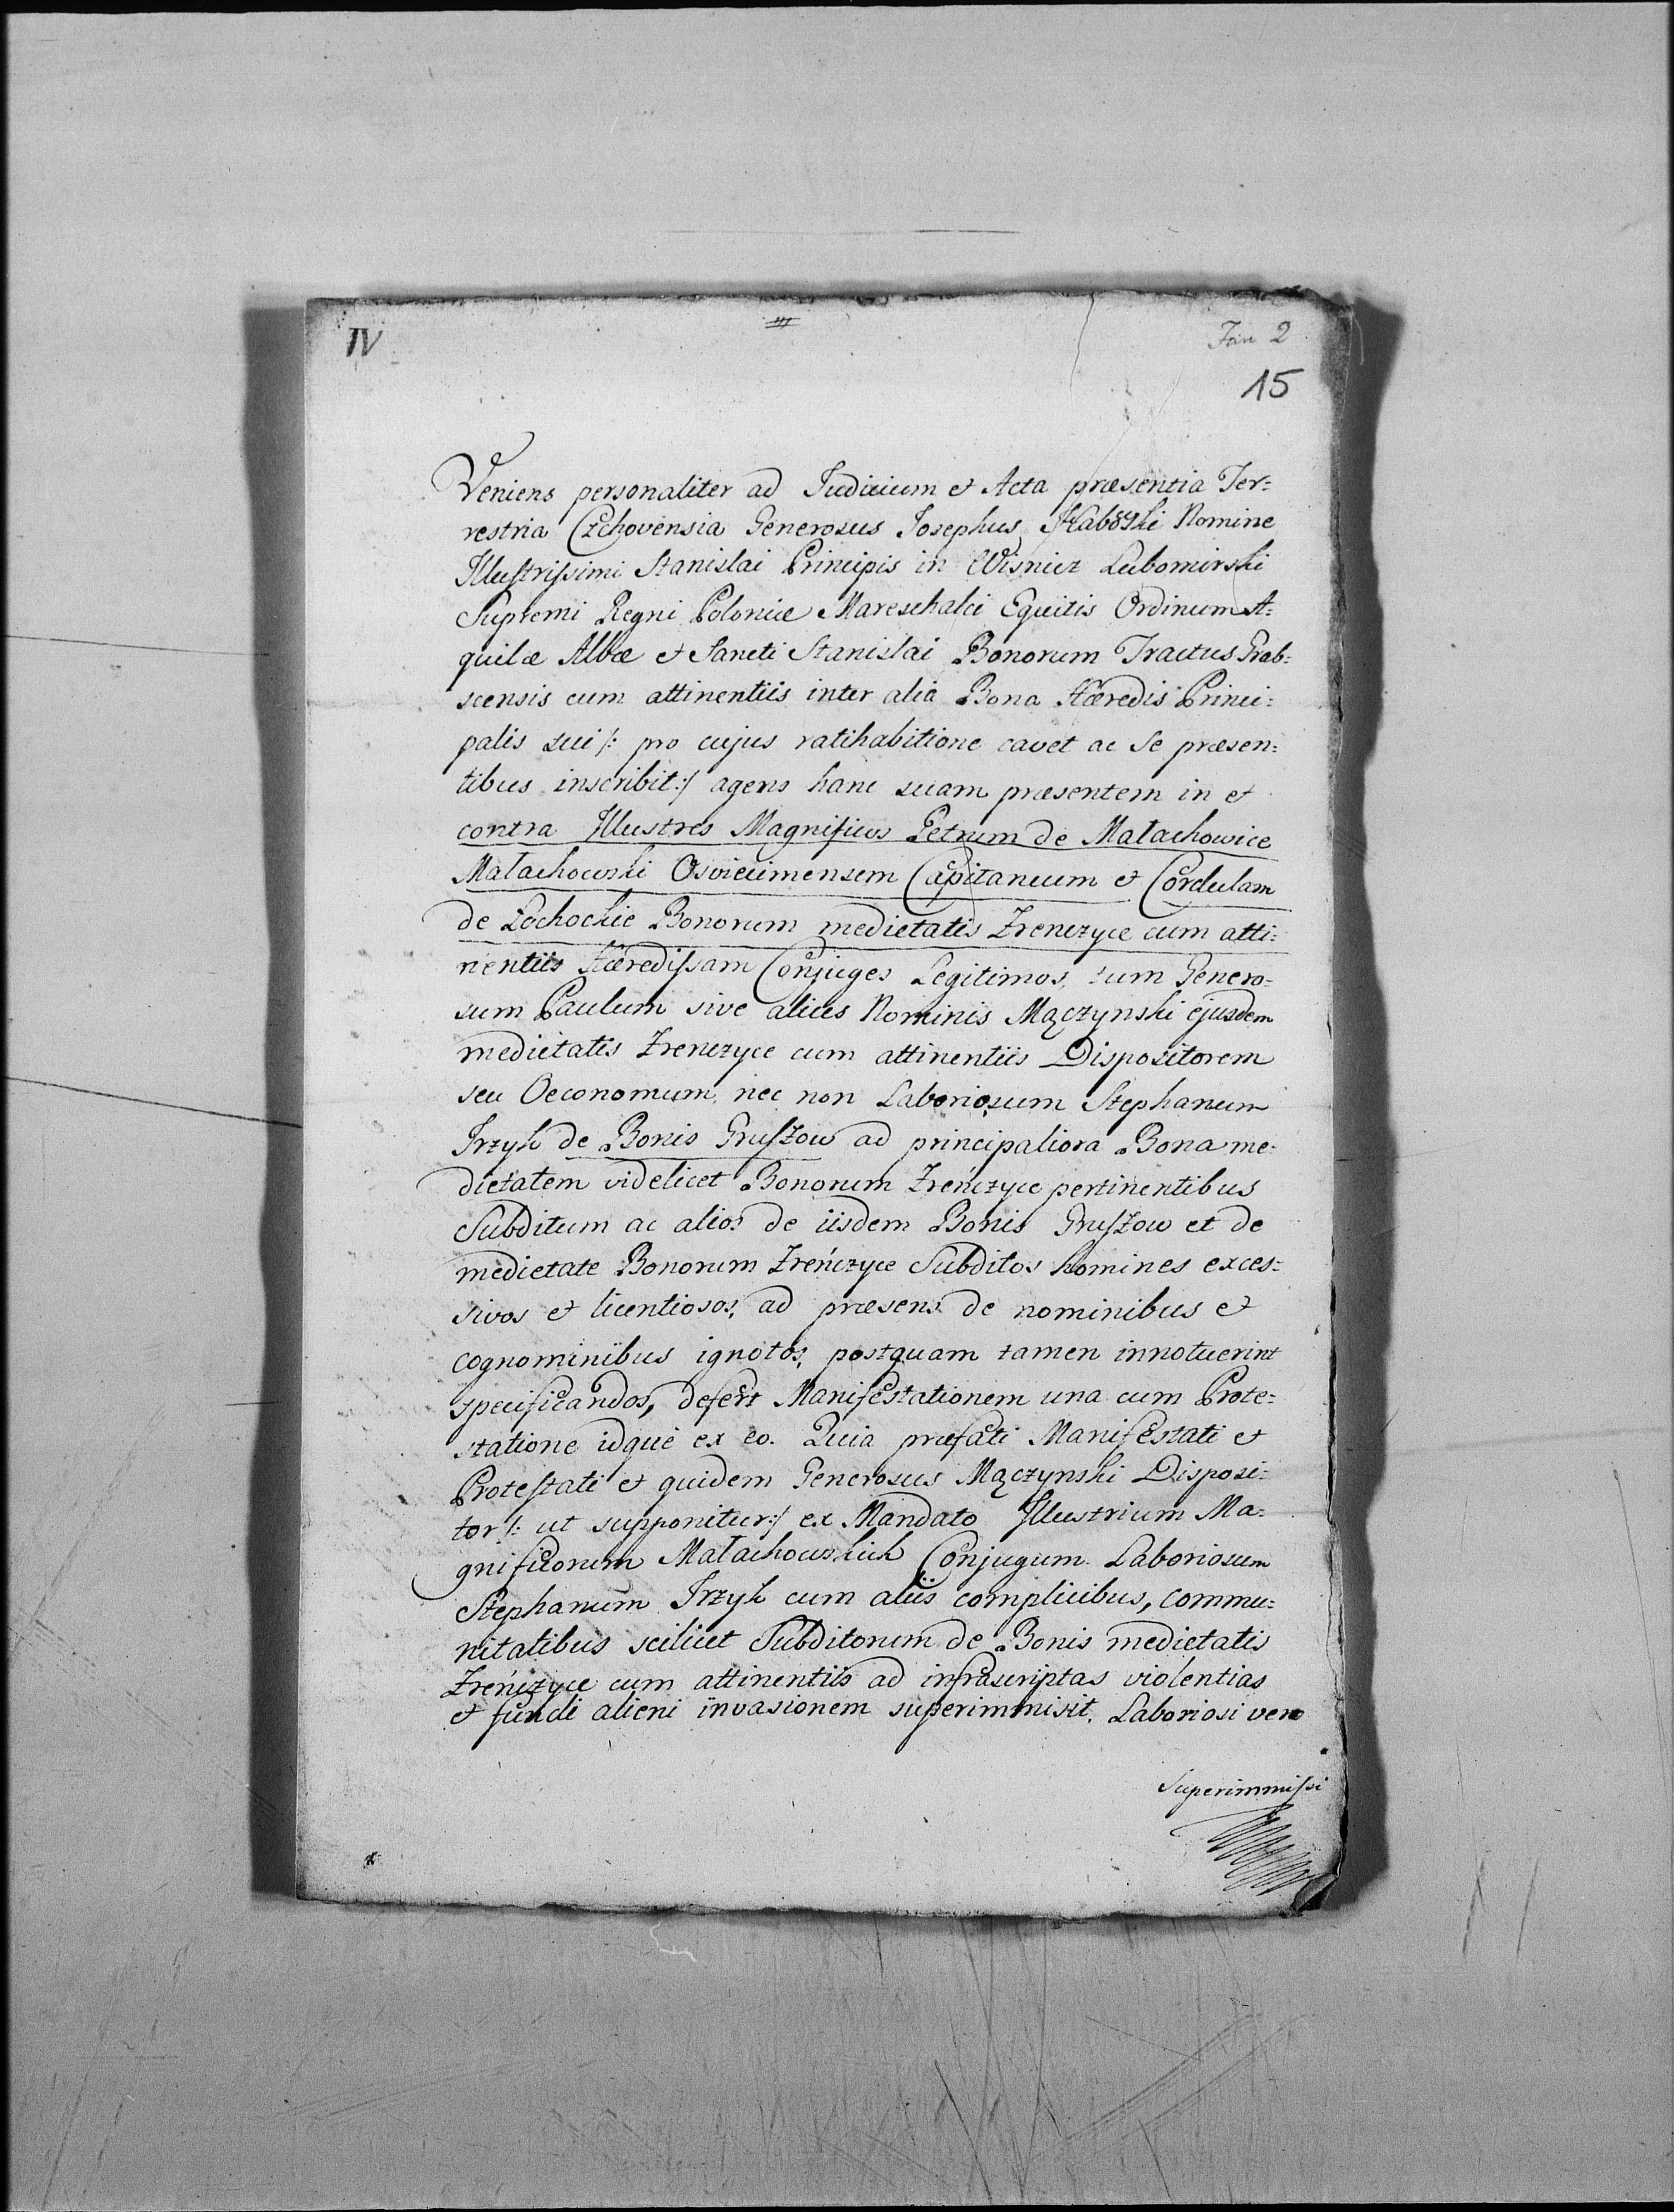 IV
Jan 2
15
Veniens personaliter ad Judicium et Acta præsentia Ter=
restria Czchovensia Generosus Josephus Nomine
Illustrissimi Stanislai Principis in Wisnicz Lubomirski
Supremi Regni Poloniæ Mareschalci Equitis Ordinum A=
quilæ Albæ et Sancti Stanislai Bonorum Tractus Grab=
scensis cum attinentiis inter alia Bona Hæredis Princi=
palis sui /: pro cujus ratihabitione cavet ac se præsen=
tibus inscribit :/ agens hanc suam præsentem in et
contra Illustres Magnificos Petrum de Małachowice
Małachowski Osviecimensem Capitaneum et Cordulam
de Łochockie Bonorum medietatis Zrenczyce cum atti=
nentiis Hæredissam Conjuges Legitimos, tum Genero=
sum Paulum sive alius Nominis Mączynski ejusdem
medietatis Zrenczyce cum attinentiis Dispositorem
seu Oeconomum, nec non Laboriosum Stephanum
Jrzyk de Bonis Gruszow ad principaliora Bona me=
dietatem videlicet Bonorum Zreńczyce pertinentibus
Subditum ac alios de iisdem Bonis Gruszow et de
medietate Bonorum Zreńczyce Subditos homines exces=
sivos et licentiosos, ad præsens de nominibus et
cognominibus ignotos, postquam tamen innotuerint
specificandos, defert Manifestationem una cum Prote=
statione idque ex eo. Quia præfati Manifestati et
Protestati et quidem Generosus Mączynski Disposi=
tor /: ut supponitur :/ ex Mandato Illustrium Ma=
gnificorum Małachowskich Conjugum Laboriosum
Stephanum Jrzyk cum aliis complicibus, commu=
nitatibus scilicet Subditorum de Bonis medietatis
Zreńczyce cum attinentiis ad infrascriptas violentias
et fundi alieni invasionem superimmisit. Laboriosi vero
Superimmissi